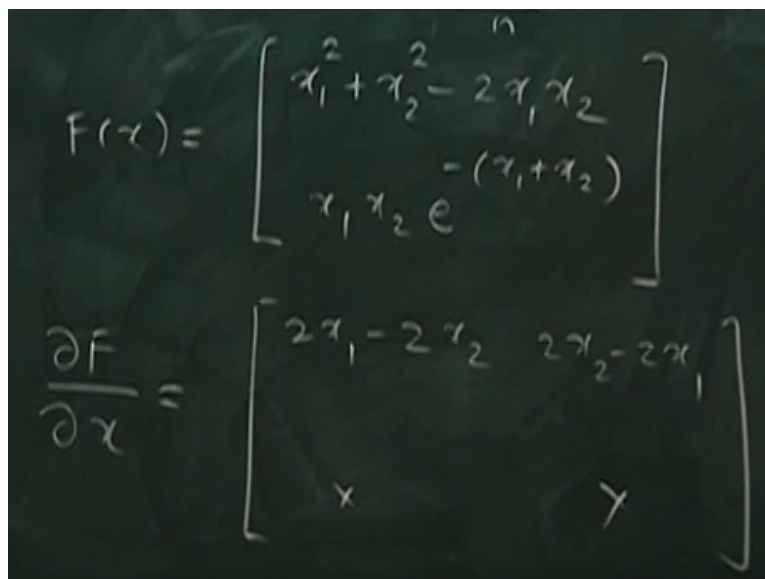 n
F(x) = [ x₁² + x₂² - 2x₁x₂
x₁ x₂ e^-(x₁+x₂) ]
∂F/∂x = [ 2x₁ - 2x₂ 2x₂ - 2x₁
x y ]